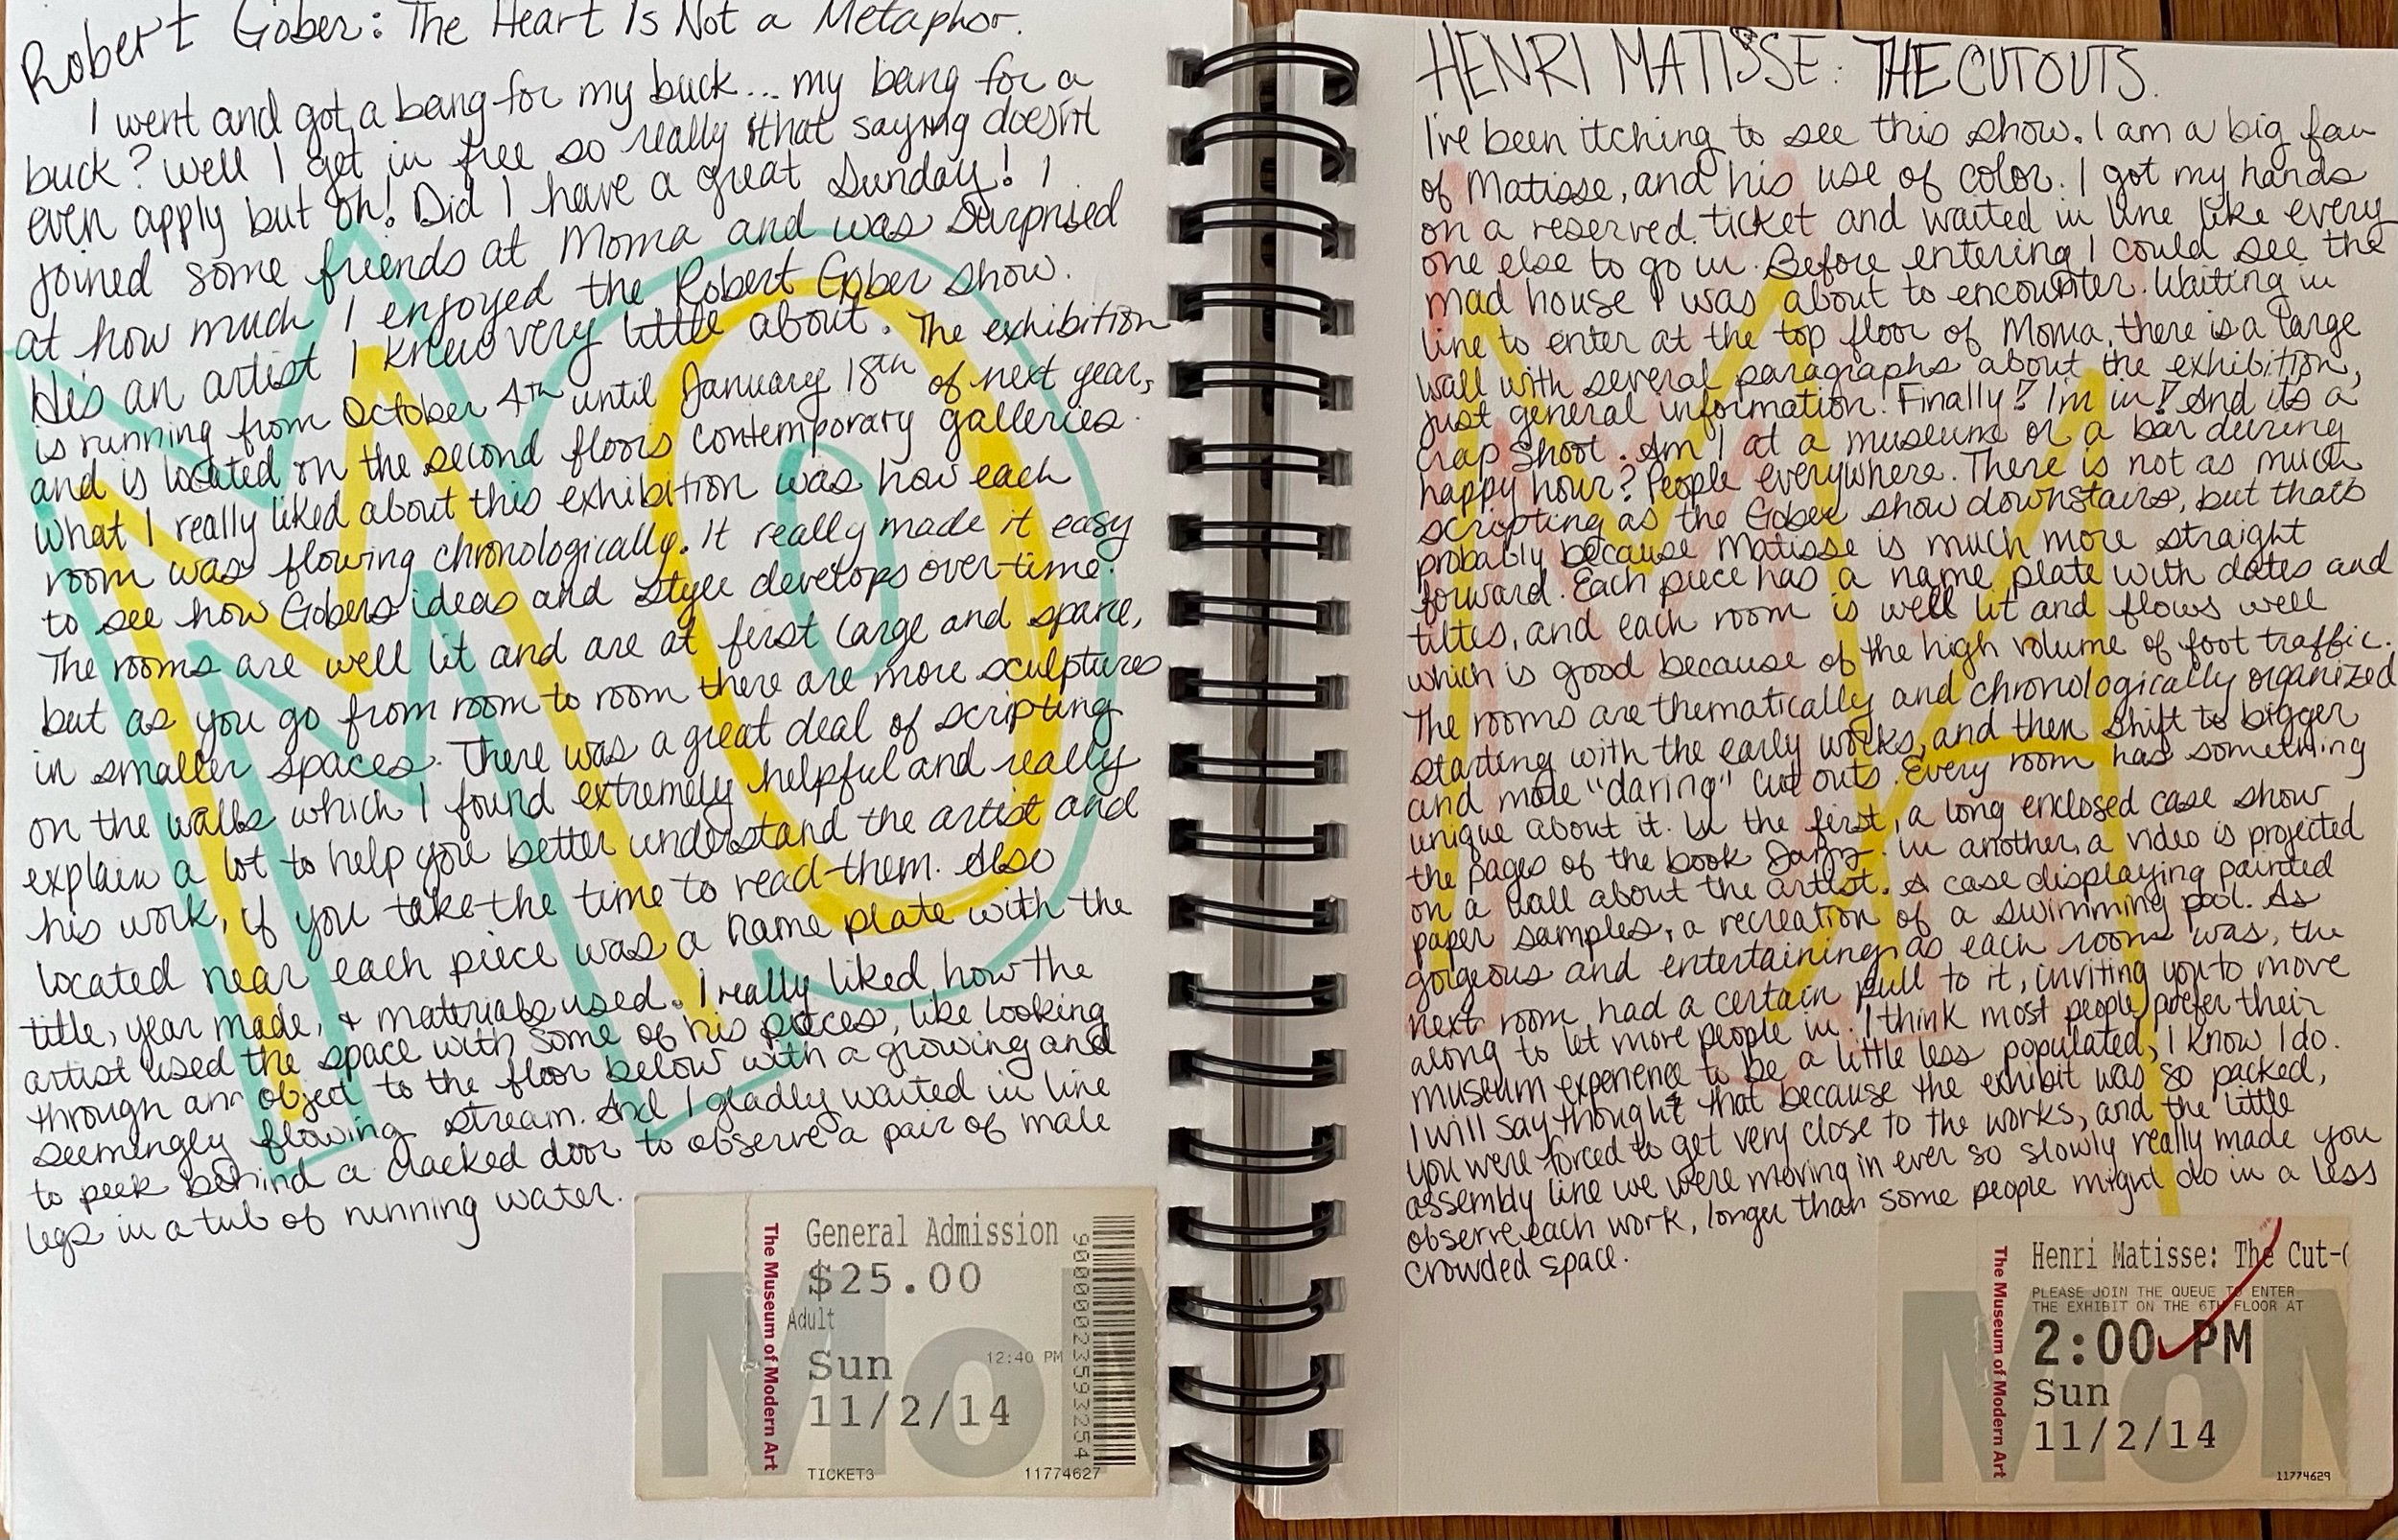 Robert Gober: The Heart Is Not a Metaphor.
I went and got a bang for my buck... my bang for a
buck? Well I get in free so really that saying doesn't
even apply but oh! Did I have a great Sunday! I
joined some friends at Moma and was surprised
at how much I enjoyed the Robert Gober show.
He's an artist I knew very little about. The exhibition
is running from October 4th until January 18th of next year,
and is located on the second floors contemporary galleries.
What I really liked about this exhibition was how each
room was flowing chronologically. It really made it easy
to see how Gobers ideas and style develops over time.
The rooms are well lit and are at first large and sparce,
but as you go from room to room there are more sculptures
in smaller spaces. There was a great deal of scripting
on the walls which I found extremely helpful and really
explain a lot to help you better understand the artist and
his work, if you take the time to read them. Also
located near each piece was a name plate with the
title, year made, + materials used. I really liked how the
artist used the space with some of his pieces, like looking
through an object to the floor below with a growing and
seemingly flowing stream. And I gladly waited in line
to peek behind a cracked door to observe a pair of male
legs in a tub of running water.
The Museum of Modern Art
General Admission
$25.00
Adult
Sun
12:40 PM
11/2/14
TICKET3
11774627
9000002359932 54
MoM
HENRI MATISSE: THE CUTOUTS.
I've been itching to see this show. I am a big fan
of Matisse, and his use of color. I got my hands
on a reserved ticket and waited in line like every
one else to go in. Before entering I could see the
mad house I was about to encounter. Waiting in
line to enter at the top floor of Moma, there is a large
wall with several paragraphs about the exhibition,
just general information! Finally! I'm in! And its a
crap shoot. Am I at a museum or a bar during
happy hour? People everywhere. There is not as much
scripting as the Gober show downstairs, but thats
probably because Matisse is much more straight
forward. Each piece has a name plate with dates and
tiltes, and each room is well lit and flows well
which is good because of the high volume of foot traffic.
The rooms are thematically and chronologically organized
starting with the early works, and then shift to bigger
and more "daring" cut outs. Every room has something
unique about it. In the first, a long enclosed case show
the pages of the book Jazz. In another, a video is projected
on a wall about the artist. A case displaying painted
paper samples, a recreation of a swimming pool. As
gorgeous and entertaining as each room was, the
next room had a certain pull to it, inviting you to move
along to let more people in. I think most people prefer their
museum experience to be a little less populated, I know I do.
I will say thought that because the exhibit was so packed,
you were forced to get very close to the works, and the little
assembly line we were moving in ever so slowly really made you
observe each work, longer than some people might do in a less
crowded space.
The Museum of Modern Art
Henri Matisse: The Cut-
PLEASE JOIN THE QUEUE TO ENTER
THE EXHIBIT ON THE 6TH FLOOR AT
2:00 PM
Sun
11/2/14
11774629
MoM
MO
MA